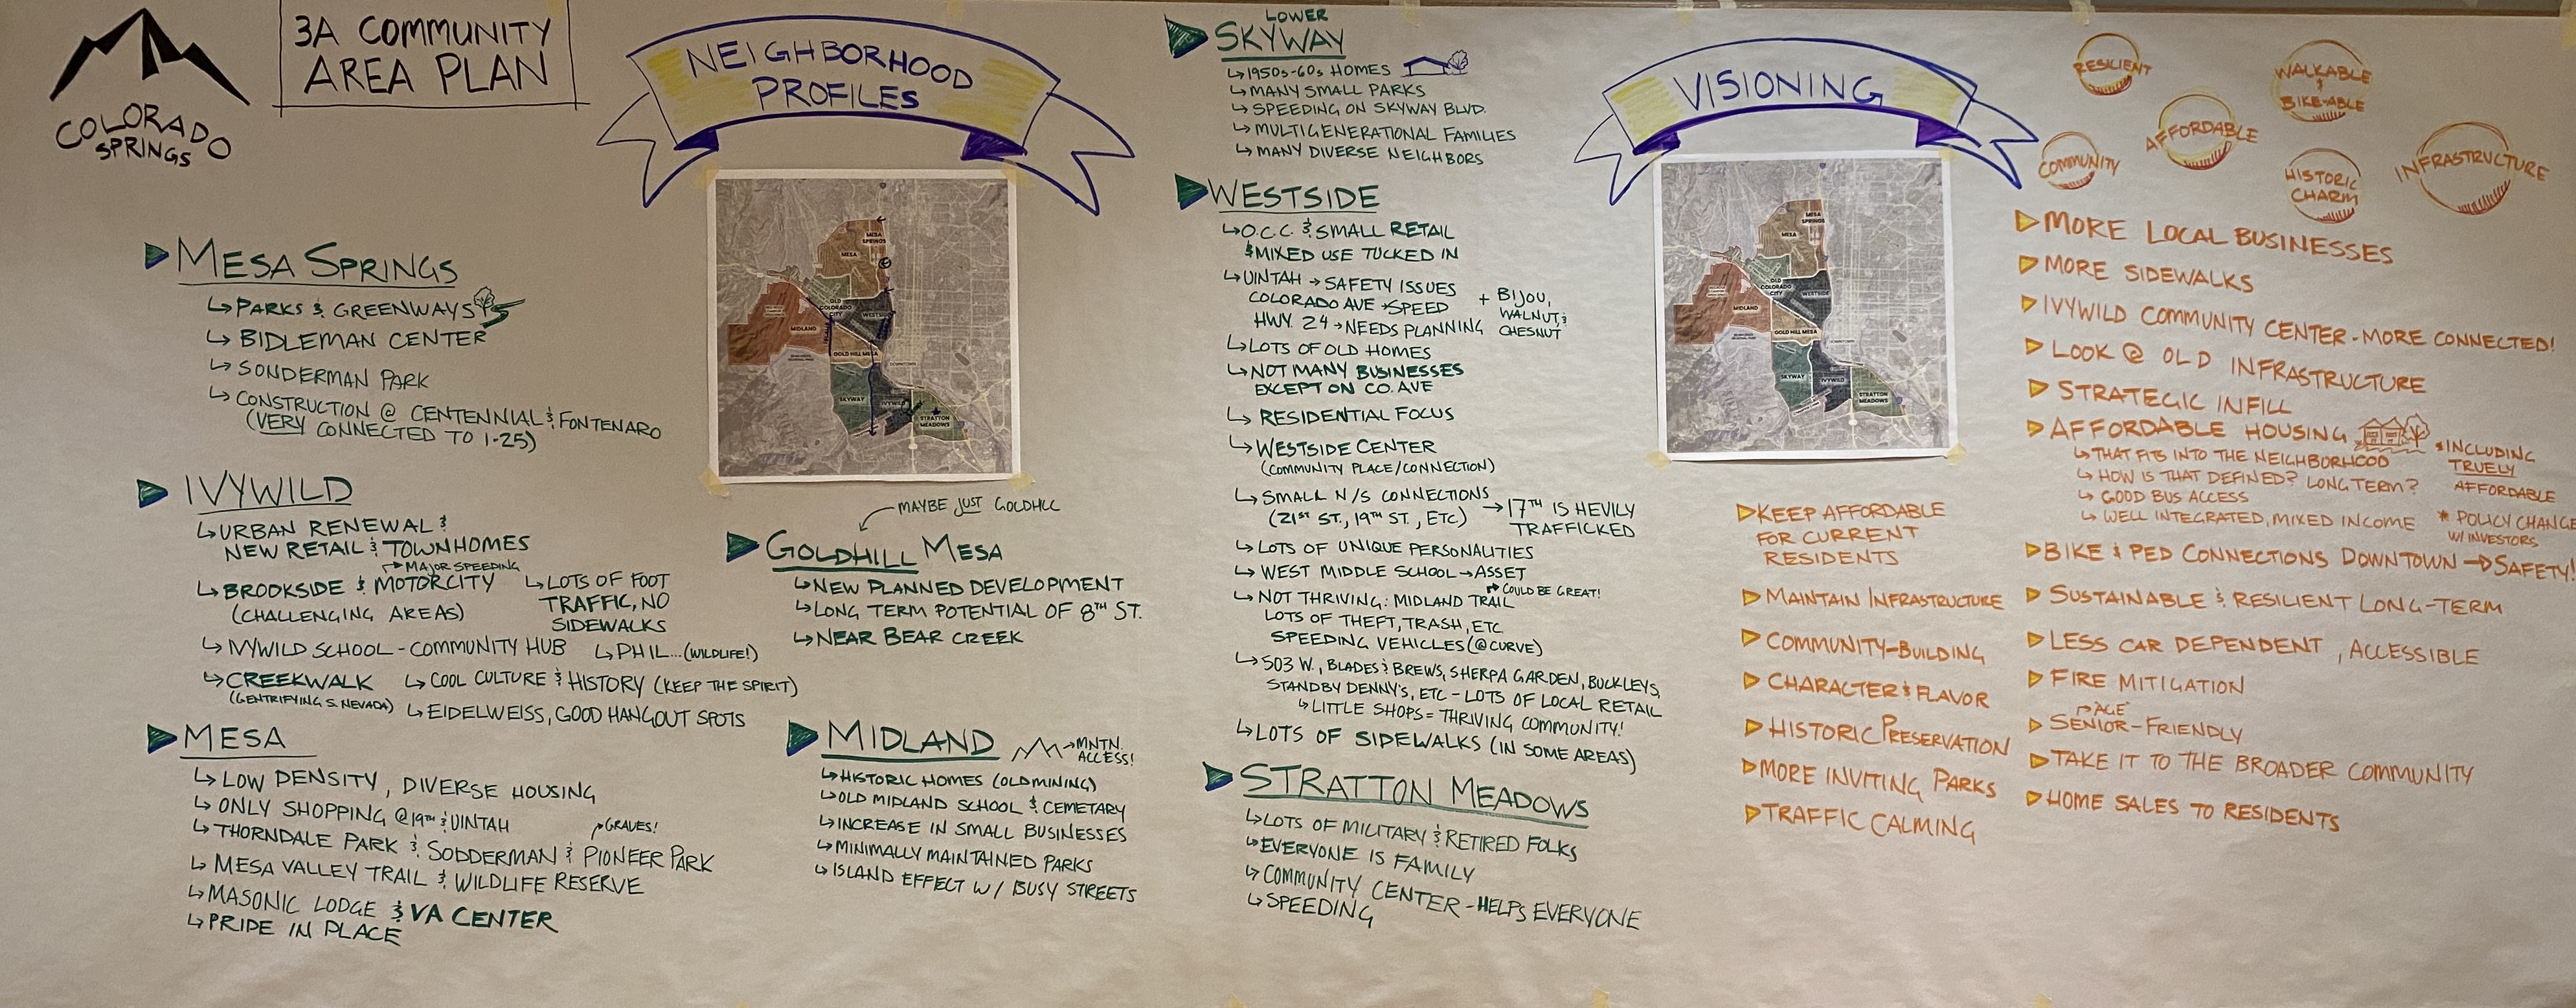 COLORADO
SPRINGS
3A COMMUNITY
AREA PLAN
NEIGHBORHOOD
PROFILES
MESA SPRINGS
PARKS & GREENWAYS
BIDLEMAN CENTER
SONDERMAN PARK
CONSTRUCTION @ CENTENNIAL & FONTENARO
(VERY CONNECTED TO I-25)
IVYWILD
URBAN RENEWAL &
NEW RETAIL & TOWNHOMES
MAJOR SPEEDING
BROOKSIDE & MOTORCITY
(CHALLENGING AREAS)
LOTS OF FOOT
TRAFFIC, NO
SIDEWALKS
IVYWILD SCHOOL - COMMUNITY HUB
PHIL... (WILDLIFE!)
CREEKWALK
(GENTRIFYING S. NEVADA)
COOL CULTURE & HISTORY (KEEP THE SPIRIT)
EIDELWEISS, GOOD HANGOUT SPOTS
MESA
LOW DENSITY, DIVERSE HOUSING
ONLY SHOPPING @ 19TH & UINTAH
THORNDALE PARK & SODDERMAN & PIONEER PARK
GRAVES!
MESA VALLEY TRAIL & WILDLIFE RESERVE
MASONIC LODGE & VA CENTER
PRIDE IN PLACE
MESA
SPRINGS
MESA
OLD
COLORADO
CITY
WESTSIDE
MIDLAND
GOLD HILL MESA
SKYWAY
IVYWILD
STRATTON
MEADOWS
MAYBE JUST GOLDHILL
GOLDHILL MESA
NEW PLANNED DEVELOPMENT
LONG TERM POTENTIAL OF 8TH ST.
NEAR BEAR CREEK
MIDLAND
MNTN.
ACCESS!
HISTORIC HOMES (OLD MINING)
OLD MIDLAND SCHOOL & CEMETARY
INCREASE IN SMALL BUSINESSES
MINIMALLY MAINTAINED PARKS
ISLAND EFFECT W/ BUSY STREETS
LOWER
SKYWAY
1950s-60s HOMES
MANY SMALL PARKS
SPEEDING ON SKYWAY BLVD.
MULTIGENERATIONAL FAMILIES
MANY DIVERSE NEIGHBORS
WESTSIDE
O.C.C. & SMALL RETAIL
& MIXED USE TUCKED IN
UINTAH → SAFETY ISSUES
COLORADO AVE → SPEED
HWY. 24 → NEEDS PLANNING
+ BIJOU,
WALNUT, &
CHESNUT
LOTS OF OLD HOMES
NOT MANY BUSINESSES
EXCEPT ON CO. AVE
RESIDENTIAL FOCUS
WESTSIDE CENTER
(COMMUNITY PLACE/CONNECTION)
SMALL N/S CONNECTIONS
(21ST ST., 19TH ST., ETC)
→ 17TH IS HEVILY
TRAFFICKED
LOTS OF UNIQUE PERSONALITIES
WEST MIDDLE SCHOOL → ASSET
COULD BE GREAT!
NOT THRIVING: MIDLAND TRAIL
LOTS OF THEFT, TRASH, ETC
SPEEDING VEHICLES (@ CURVE)
503 W., BLADES & BREWS, SHERPA GARDEN, BUCKLEYS,
STANDBY DENNY'S, ETC - LOTS OF LOCAL RETAIL
LITTLE SHOPS = THRIVING COMMUNITY!
LOTS OF SIDEWALKS (IN SOME AREAS)
STRATTON MEADOWS
LOTS OF MILITARY & RETIRED FOLKS
EVERYONE IS FAMILY
COMMUNITY CENTER - HELPS EVERYONE
SPEEDING
VISIONING
MESA
SPRINGS
MESA
OLD
COLORADO
CITY
WESTSIDE
MIDLAND
GOLD HILL MESA
SKYWAY
IVYWILD
STRATTON
MEADOWS
KEEP AFFORDABLE
FOR CURRENT
RESIDENTS
MAINTAIN INFRASTRUCTURE
COMMUNITY-BUILDING
CHARACTER & FLAVOR
HISTORIC PRESERVATION
MORE INVITING PARKS
TRAFFIC CALMING
RESILIENT
WALKABLE
&
BIKE-ABLE
AFFORDABLE
COMMUNITY
HISTORIC
CHARM
INFRASTRUCTURE
MORE LOCAL BUSINESSES
MORE SIDEWALKS
IVYWILD COMMUNITY CENTER - MORE CONNECTED!
LOOK @ OLD INFRASTRUCTURE
STRATEGIC INFILL
AFFORDABLE HOUSING
THAT FITS INTO THE NEIGHBORHOOD
HOW IS THAT DEFINED? LONG TERM?
GOOD BUS ACCESS
WELL INTEGRATED, MIXED INCOME
* INCLUDING
TRUELY
AFFORDABLE
* POLICY CHANGE
W/ INVESTORS
BIKE & PED CONNECTIONS DOWNTOWN → SAFETY!
SUSTAINABLE & RESILIENT LONG-TERM
LESS CAR DEPENDENT, ACCESSIBLE
FIRE MITIGATION
AGE
SENIOR-FRIENDLY
TAKE IT TO THE BROADER COMMUNITY
HOME SALES TO RESIDENTS